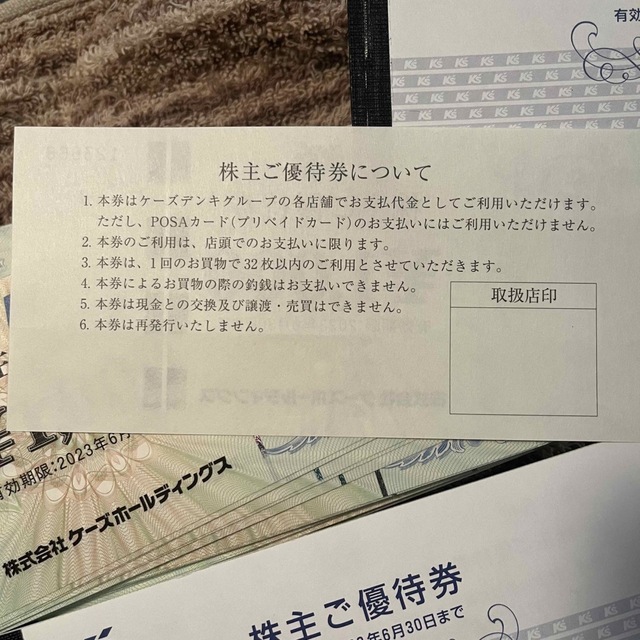 有効
K's K's K's K's K's
株主ご優待券について
1. 本券はケーズデンキグループの各店舗でお支払代金としてご利用いただけます。
ただし、POSAカード(プリペイドカード)のお支払いにはご利用いただけません。
2. 本券のご利用は、店頭でのお支払いに限ります。
3. 本券は、1回のお買物で32枚以内のご利用とさせていただきます。
4. 本券によるお買物の際の釣銭はお支払いできません。
5. 本券は現金との交換及び譲渡・売買はできません。
6. 本券は再発行いたしません。
取扱店印
有効期限:2023年6月
株式会社 ケーズホールディングス
株主ご優待券
年6月30日まで